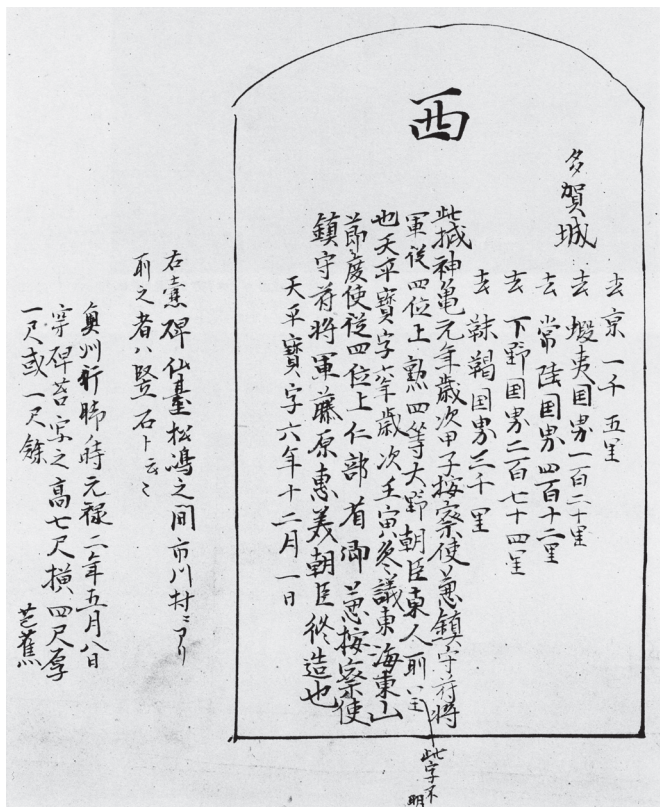 西
多賀城
去京一千五里
去蝦夷国界一百二十里
去常陸国界四百十二里
去下野国界二百七十四里
去靺鞨国界三千里
此城神亀元年歳次甲子按察使兼鎮守苻将
軍従四位上勲四等大野朝臣東人所
也天平寶字六年歳次壬寅参議東海東山
節度使従四位上仁部省卿兼按察使
鎮守苻将軍藤原恵美朝臣修造也
天平寶字六年十二月一日
此字不
明
右壷碑仙臺松嶋之間市川村ニアリ
所之者ハ竪石ト云々
奥州行脚ノ時元禄二年五月八日
穿碑苔写之高七尺横四尺厚
一尺或一尺餘
芭蕉